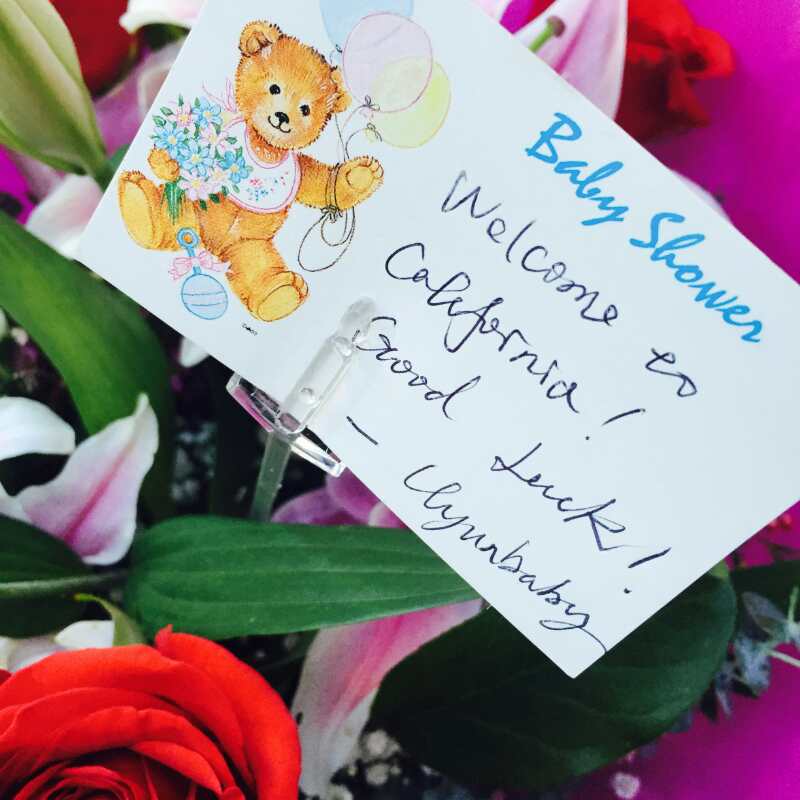 Baby Shower
Welcome to
California!
Good Luck!